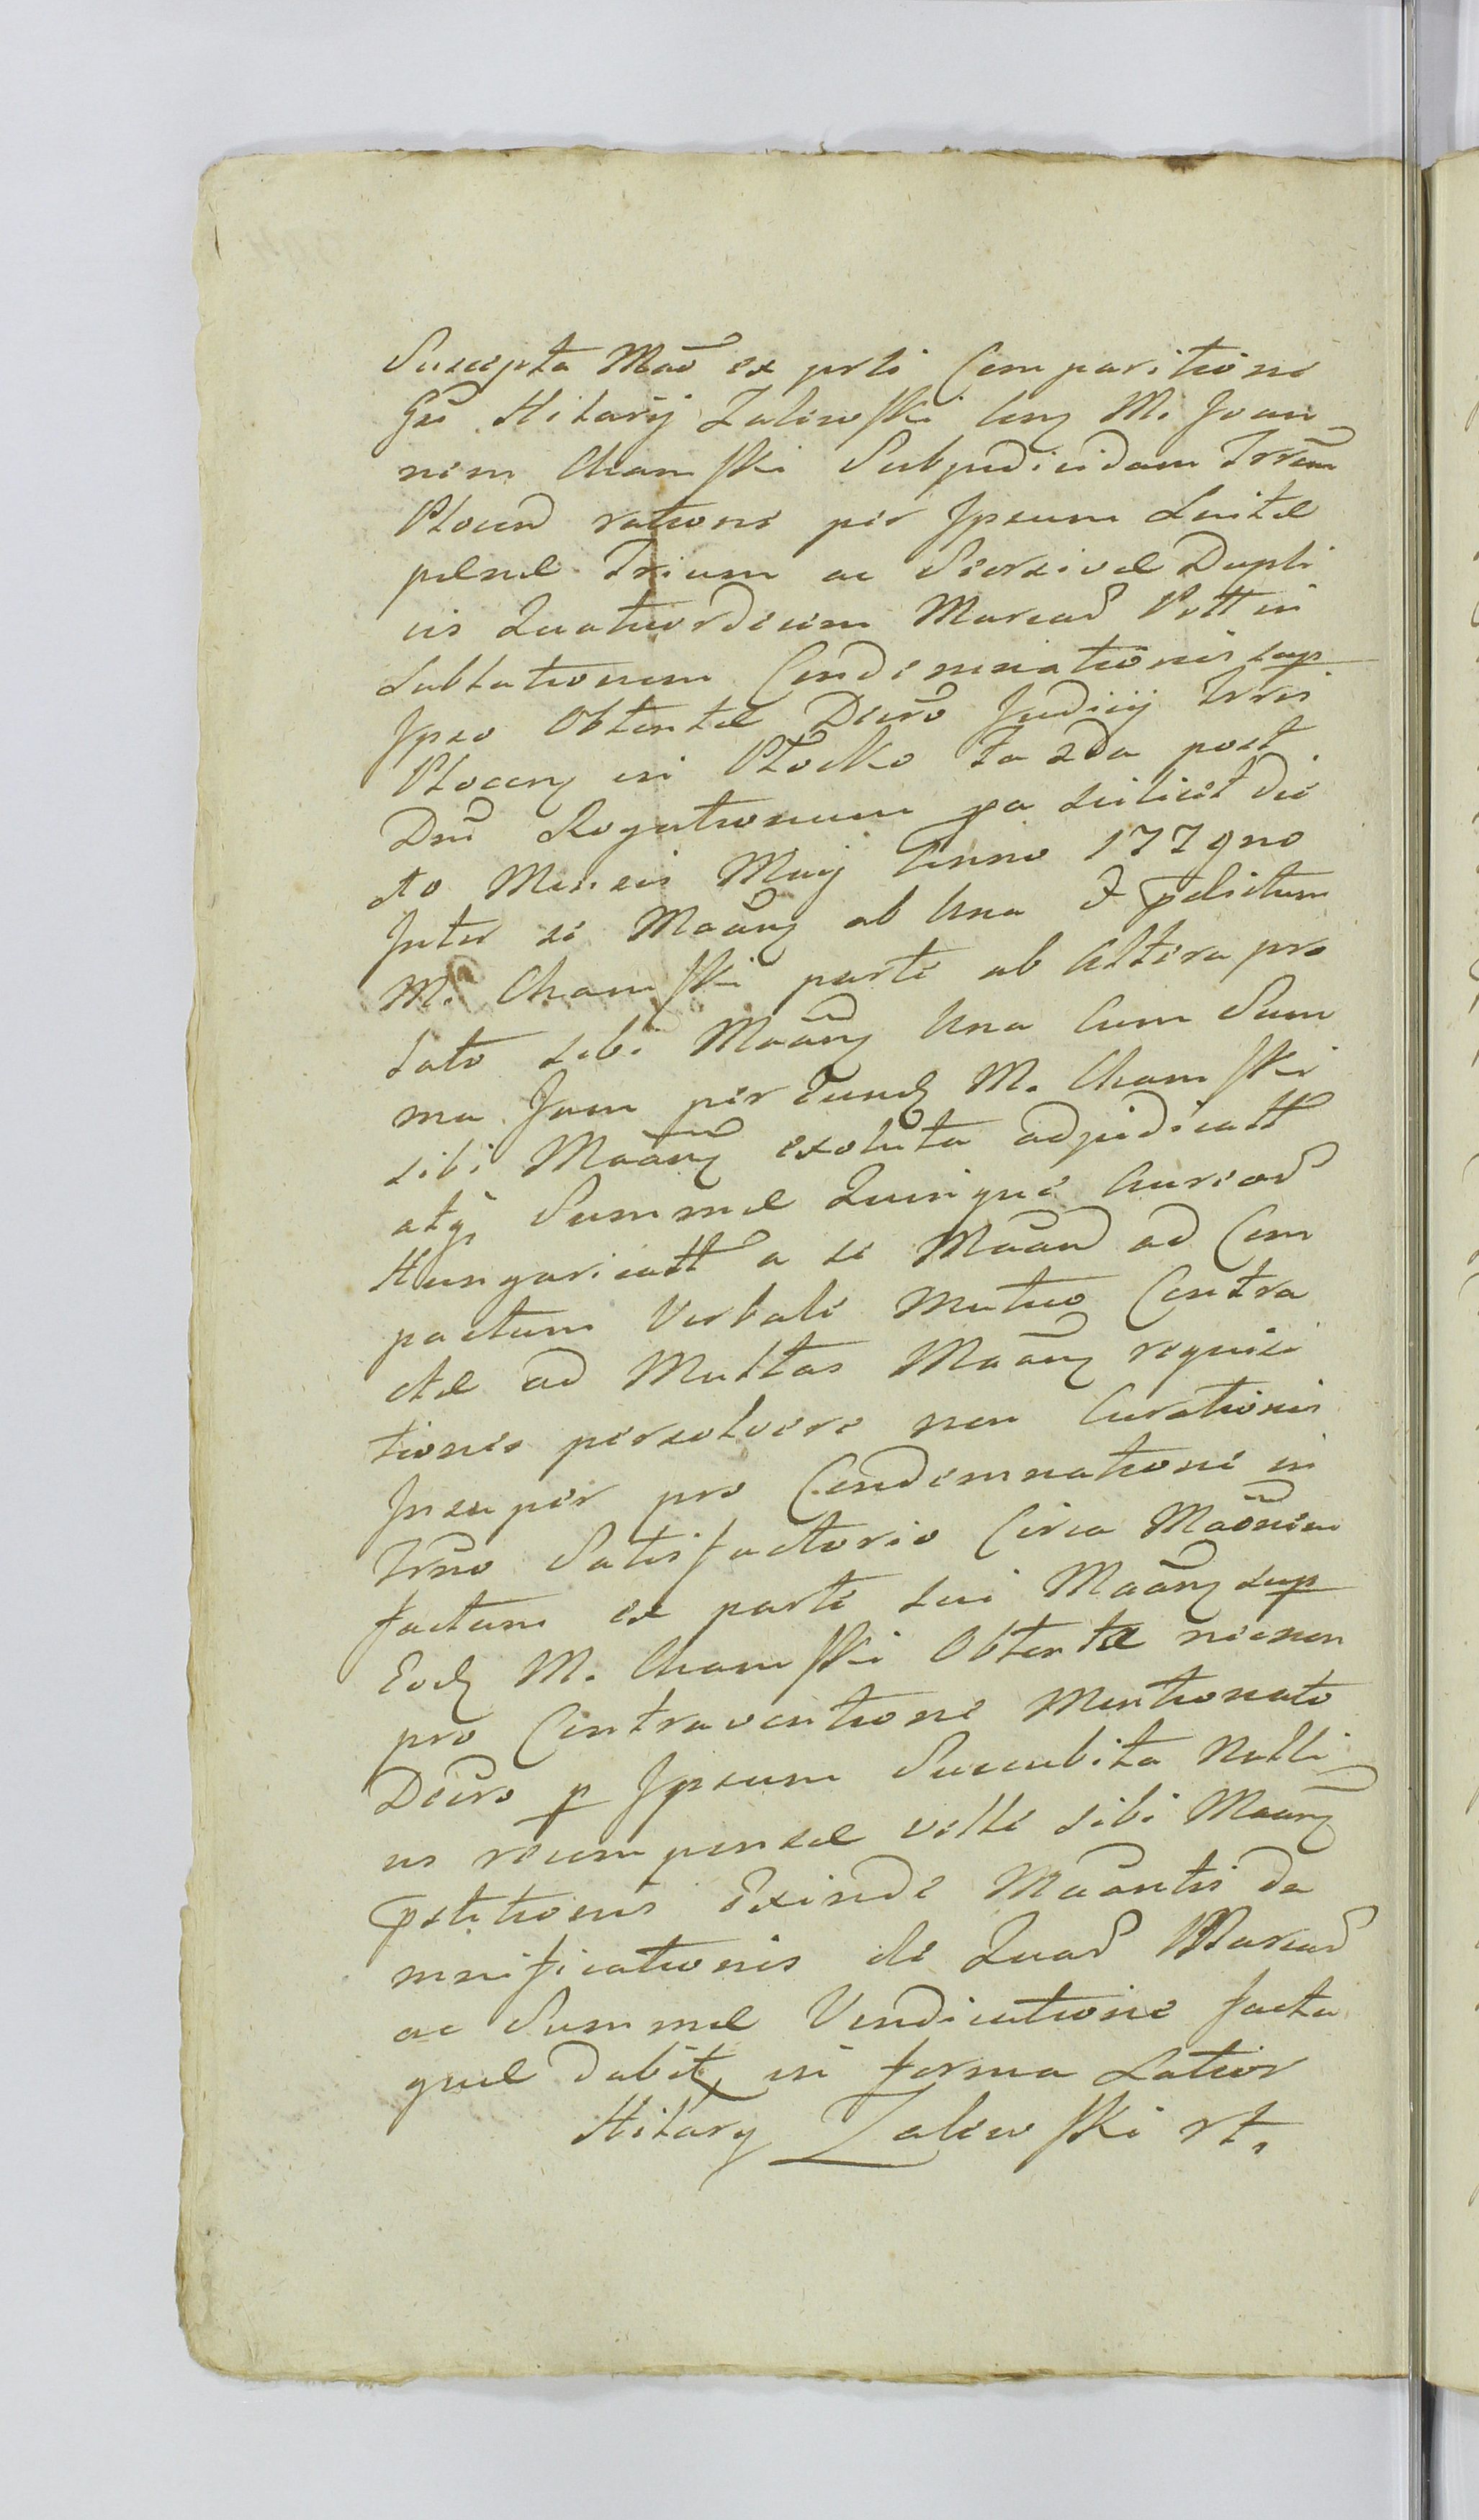 Suscepta Mao ex prti Comparitione
Gsi Hilarij Zalewski Cnq M. Joan
nem Chamski Subjudicidam Trrem
Plocen ratione per Ipsum Luitæ
pænæ Trium ac Seorsivæ Dupli
cis Quatuordecim Marcas Poll in
Sublationem Condemnationis sup
Ipso Obtentæ Decro Judicij Trris
Plocen in Plocko fa 2da post
Dni Rogationum pa scilicet die
10 Mensis Maij Anno 1779no
Inter se Maanq ab Una et pdictum
M. Chamski parte ab Altera pro
Lato sibi Maanq Una Cum Sum
ma Jam per Eundq M. Chamski
sibi Maanq exoluta adjudicatt
atq Summæ Quinque Aureos
Hungaricatt a se Maan ad Com
pactum Verbale Mutuo Contra
ctæ ad Multas Maanq requisi
tiones persolvere non Curationis
Insuper pro Condemnatione in
Trno Satisfactorio Circa Maonem
factam ex parte sui Maanq sup
Eodq M. Chamski Obtentæ necnon
pro Contraventione Mentionato
Decro p Ipsum Succubita Nulli
us recompensæ velle sibi Maanq
pstitionis Exinde Maantis da
mnificationis de Quad Marcas
ac Summæ Vendicatione facta
quæ dabit, in forma Latior
Hilary Zalewski rt.